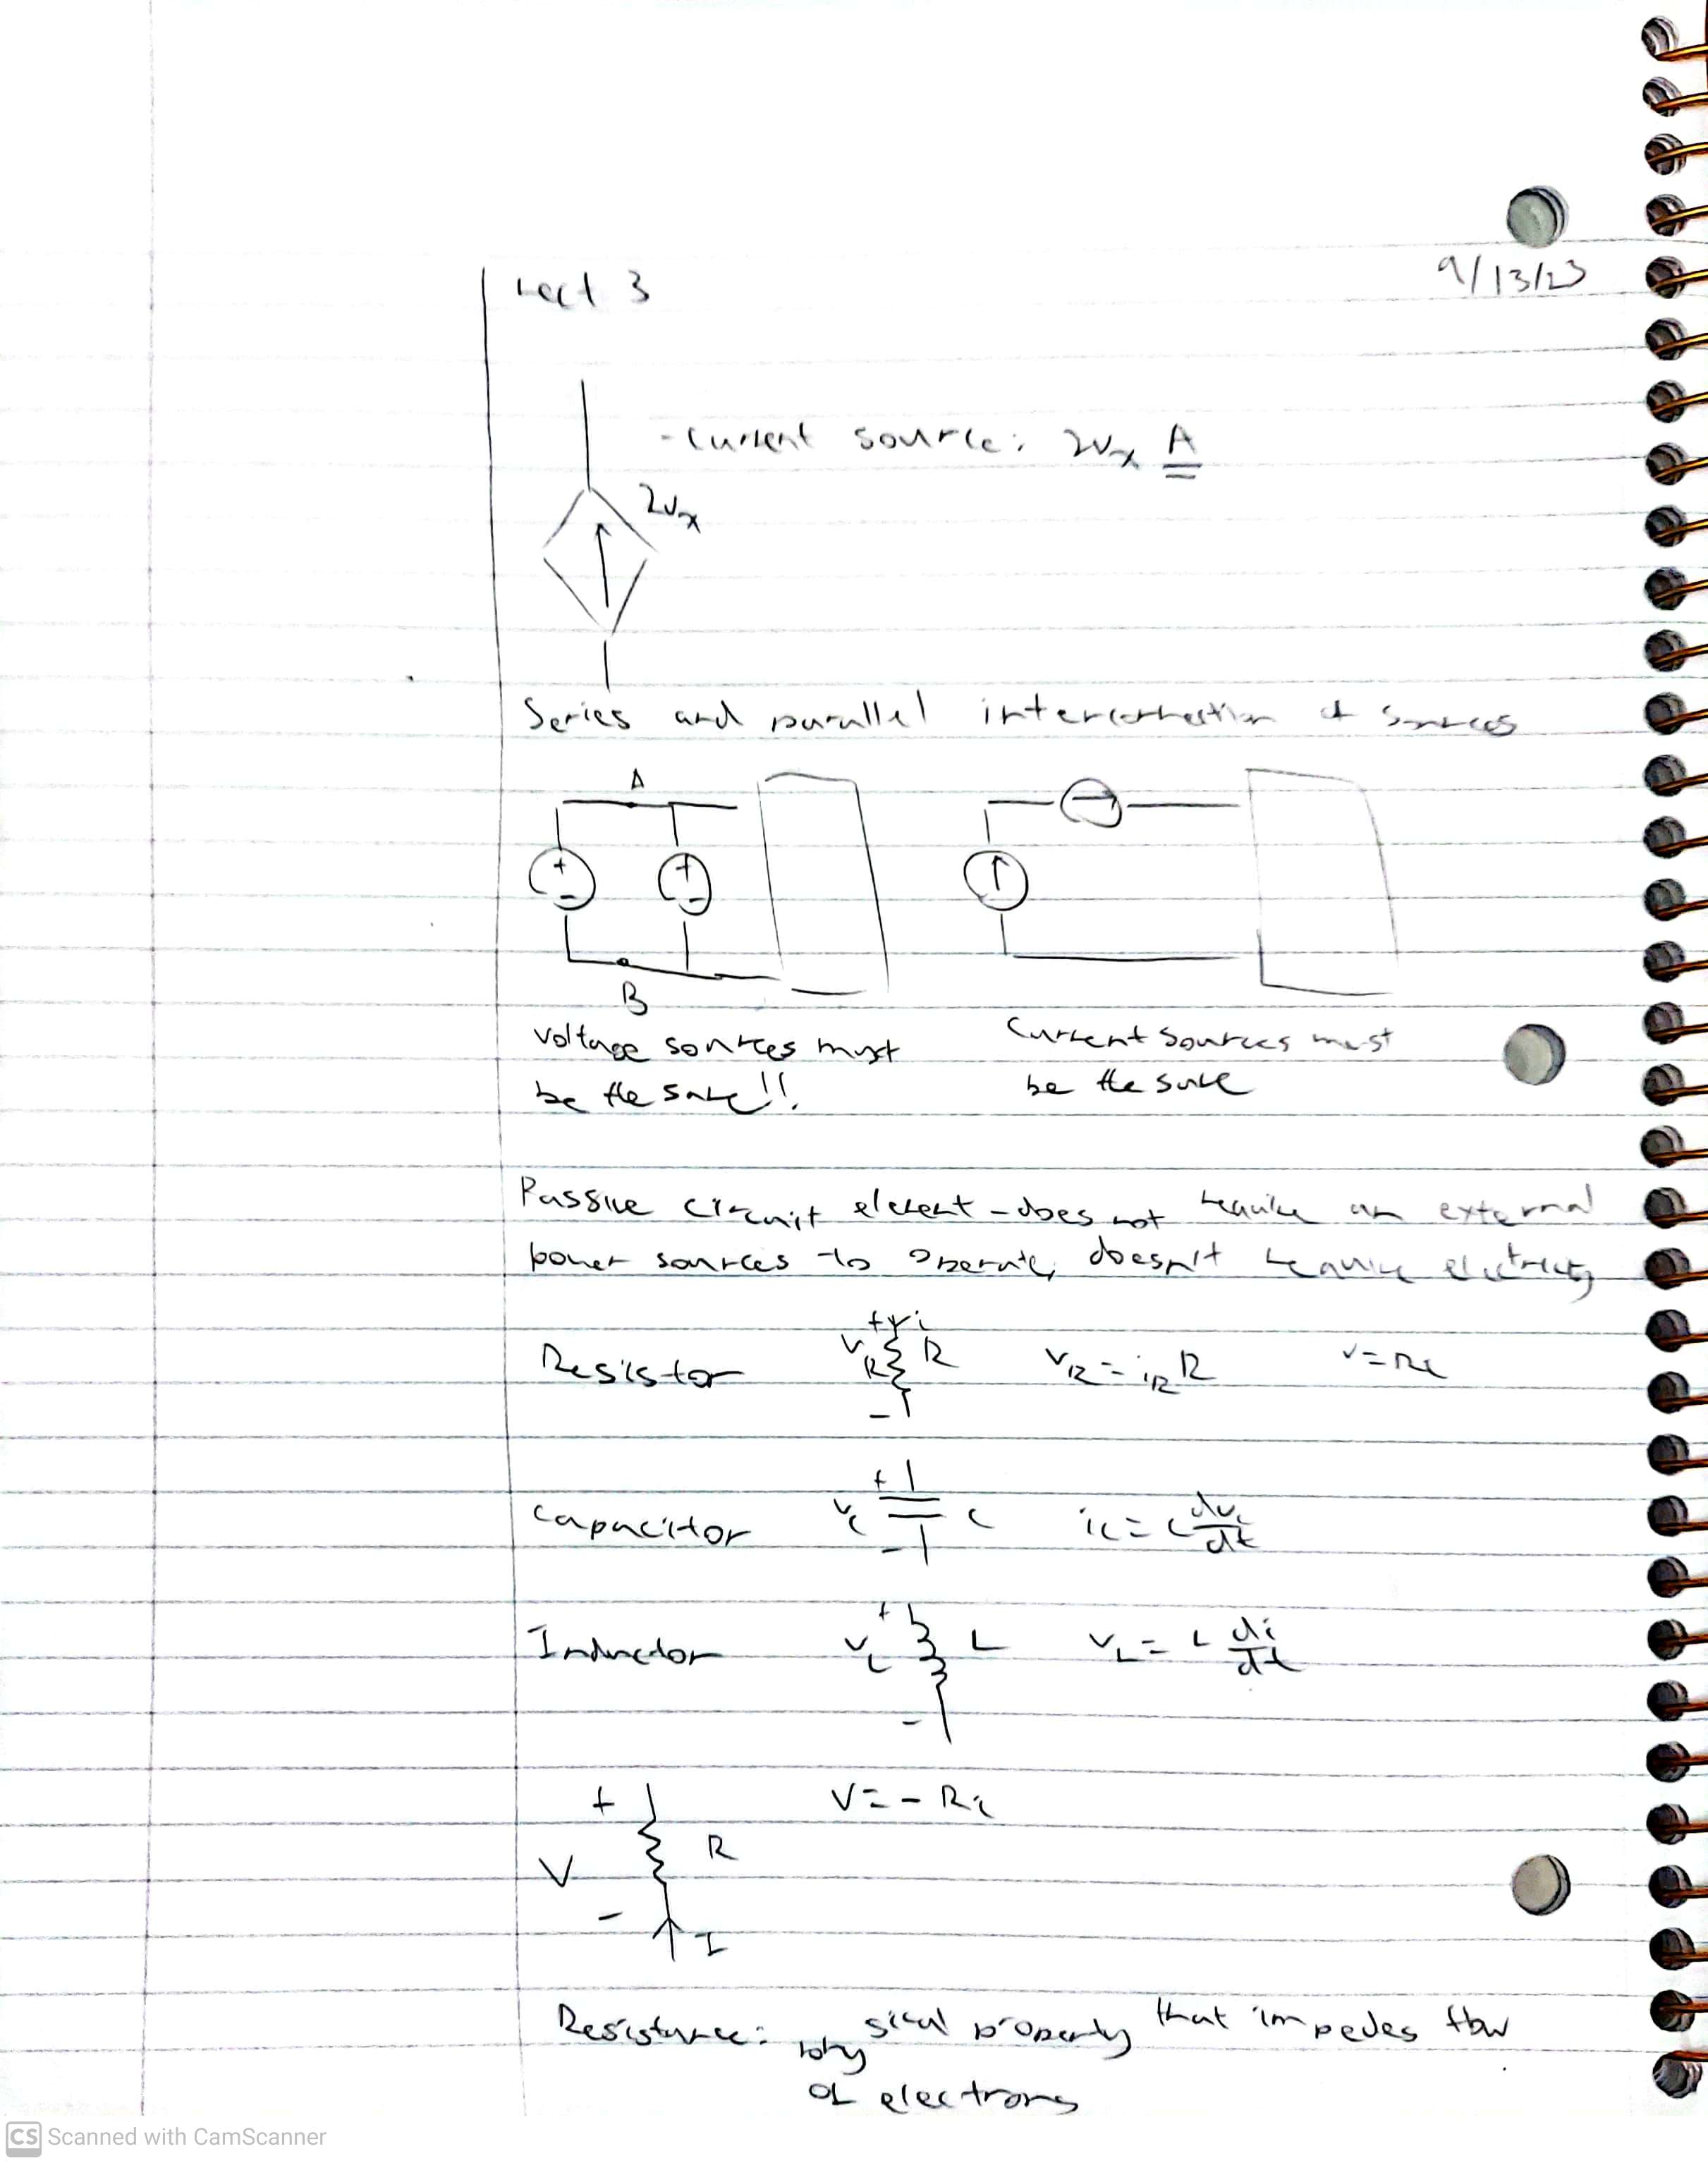 Lect 3
9/13/23
- Current source: 2vx A
2vx
Series and parallel interconnection of sources
A
+ +
- -
B
Voltage sources must
be the same!!
Current sources must
be the same
Passive circuit element - does not require an external
power sources to operate, doesn't require electricity
Resistor + i vR R - vR = iR R v = Ri
Capacitor + vc c - ic = c dvc/dt
Inductor + vL L - vL = L di/dt
+ V = - Ri
V R
- I
Resistance: physical property that impedes flow
of electrons
CS Scanned with CamScanner